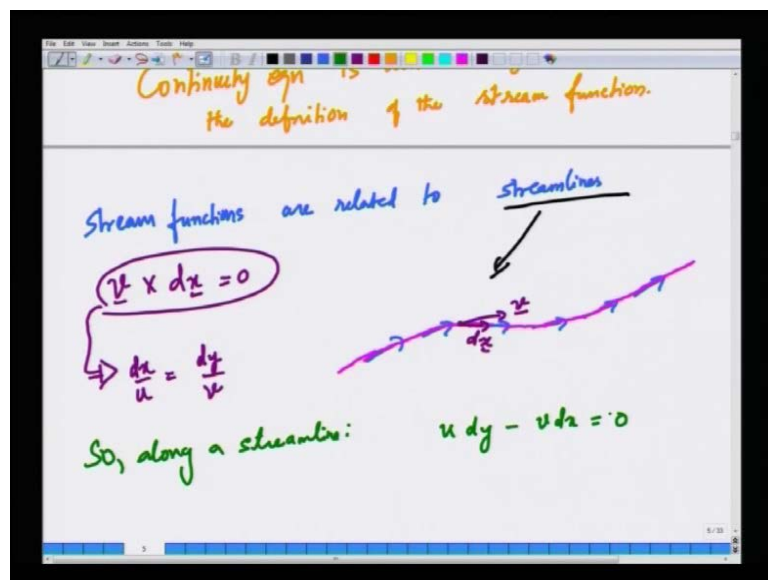 File Edit View Insert Actions Tools Help
Continuity eqn is
the definition of the stream function.
Stream functions are related to streamlines
v × dx = 0
v
dx
dx/u = dy/v
So, along a streamline: u dy - v dx = 0
5/33
5